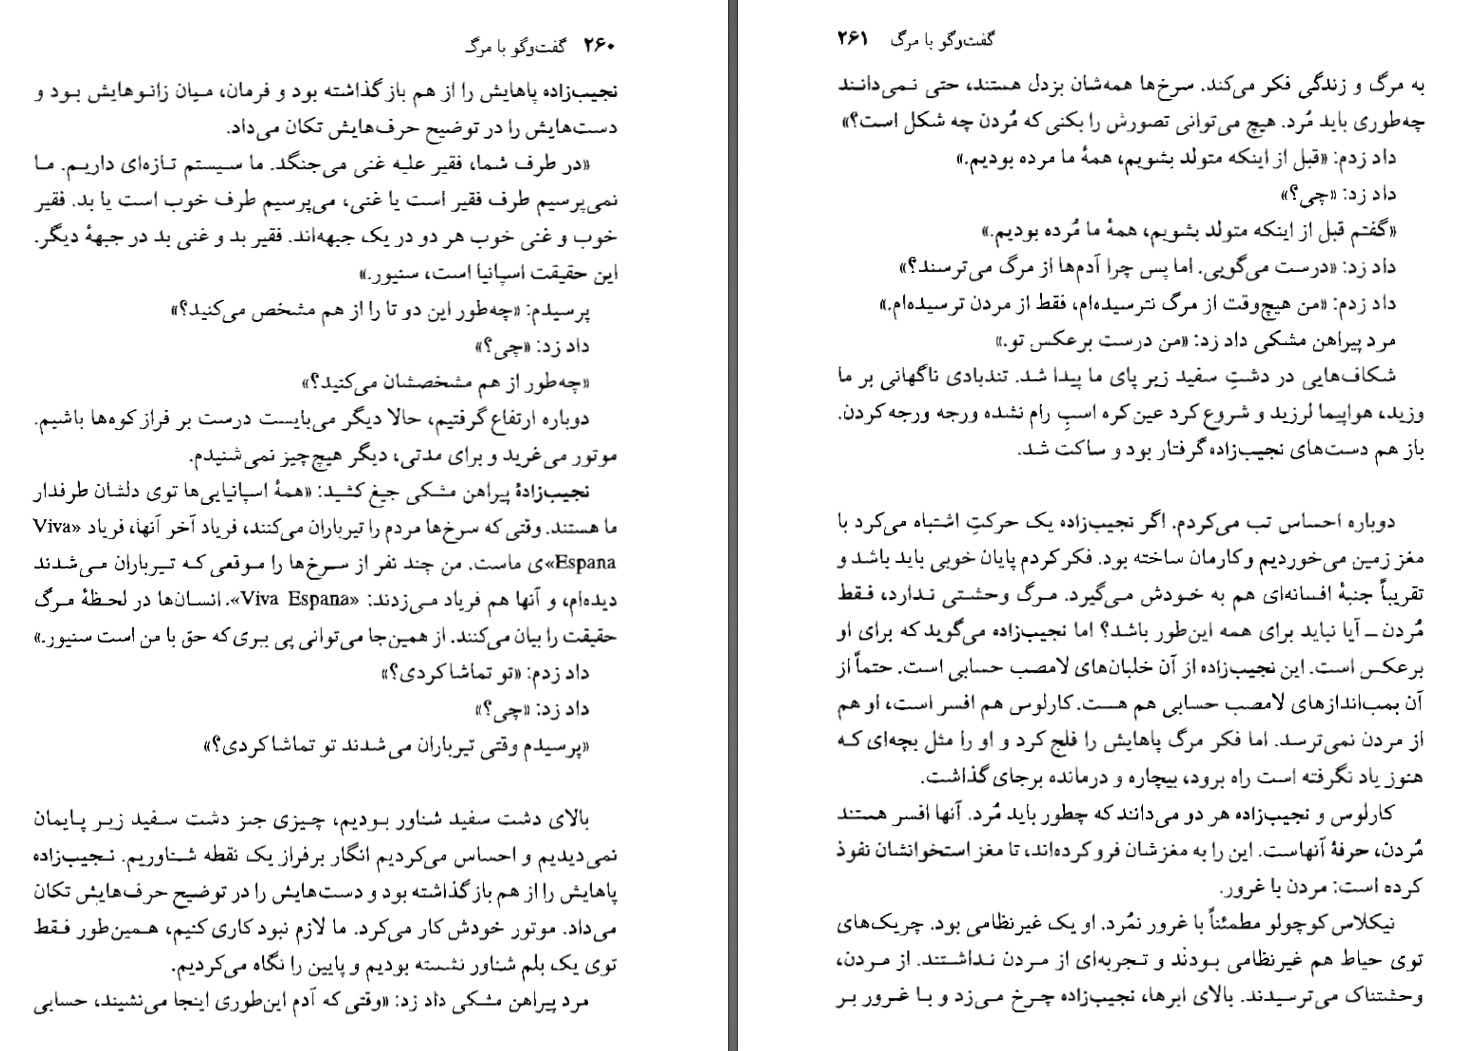 ۲۶۰ گفت‌وگو با مرگ
نجیب‌زاده پاهایش را از هم باز گذاشته بود و فرمان، میان زانوهایش بود و
دست‌هایش را در توضیح حرف‌هایش تکان می‌داد.
«در طرف شما، فقیر علیه غنی می‌جنگد. ما سیستم تازه‌ای داریم. ما
نمی‌پرسیم طرف فقیر است یا غنی، می‌پرسیم طرف خوب است یا بد. فقیر
خوب و غنی خوب هر دو در یک جبهه‌اند. فقیر بد و غنی بد در جبههٔ دیگر.
این حقیقت اسپانیا است، سنیور.»
پرسیدم: «چه‌طور این دو تا را از هم مشخص می‌کنید؟»
داد زد: «چی؟»
«چه‌طور از هم مشخصشان می‌کنید؟»
دوباره ارتفاع گرفتیم، حالا دیگر می‌بایست درست بر فراز کوه‌ها باشیم.
موتور می‌غرید و برای مدتی، دیگر هیچ‌چیز نمی‌شنیدم.
نجیب‌زادهٔ پیراهن مشکی جیغ کشید: «همهٔ اسپانیایی‌ها توی دلشان طرفدار
ما هستند. وقتی که سرخ‌ها مردم را تیرباران می‌کنند، فریاد آخر آنها، فریاد «Viva
Espana»ی ماست. من چند نفر از سرخ‌ها را موقعی که تیرباران می‌شدند
دیده‌ام، و آنها هم فریاد می‌زدند: «Viva Espana». انسان‌ها در لحظهٔ مرگ
حقیقت را بیان می‌کنند. از همین‌جا می‌توانی پی ببری که حق با من است سنیور.»
داد زدم: «تو تماشا کردی؟»
داد زد: «چی؟»
«پرسیدم وقتی تیرباران می‌شدند تو تماشا کردی؟»
بالای دشت سفید شناور بودیم، چیزی جز دشت سفید زیر پایمان
نمی‌دیدیم و احساس می‌کردیم انگار برفراز یک نقطه شناوریم. نجیب‌زاده
پاهایش را از هم باز گذاشته بود و دست‌هایش را در توضیح حرف‌هایش تکان
می‌داد. موتور خودش کار می‌کرد. ما لازم نبود کاری کنیم، همین‌طور فقط
توی یک بلم شناور نشسته بودیم و پایین را نگاه می‌کردیم.
مرد پیراهن مشکی داد زد: «وقتی که آدم این‌طوری اینجا می‌نشیند، حسابی
گفت‌وگو با مرگ ۲۶۱
به مرگ و زندگی فکر می‌کند. سرخ‌ها همه‌شان بزدل هستند، حتی نمی‌دانند
چه‌طوری باید مُرد. هیچ می‌توانی تصورش را بکنی که مُردن چه شکل است؟»
داد زدم: «قبل از اینکه متولد بشویم، همهٔ ما مرده بودیم.»
داد زد: «چی؟»
«گفتم قبل از اینکه متولد بشویم، همهٔ ما مُرده بودیم.»
داد زد: «درست می‌گویی. اما پس چرا آدم‌ها از مرگ می‌ترسند؟»
داد زدم: «من هیچ‌وقت از مرگ نترسیده‌ام، فقط از مردن ترسیده‌ام.»
مرد پیراهن مشکی داد زد: «من درست برعکس تو.»
شکاف‌هایی در دشتِ سفید زیر پای ما پیدا شد. تندبادی ناگهانی بر ما
وزید، هواپیما لرزید و شروع کرد عین کره اسبِ رام نشده ورجه ورجه کردن.
باز هم دست‌های نجیب‌زاده گرفتار بود و ساکت شد.
دوباره احساس تب می‌کردم. اگر نجیب‌زاده یک حرکتِ اشتباه می‌کرد با
مغز زمین می‌خوردیم و کارمان ساخته بود. فکر کردم پایان خوبی باید باشد و
تقریباً جنبهٔ افسانه‌ای هم به خودش می‌گیرد. مرگ وحشتی ندارد، فقط
مُردن ــ آیا نباید برای همه این‌طور باشد؟ اما نجیب‌زاده می‌گوید که برای او
برعکس است. این نجیب‌زاده از آن خلبان‌های لامصب حسابی است. حتماً از
آن بمب‌اندازهای لامصب حسابی هم هست. کارلوس هم افسر است، او هم
از مردن نمی‌ترسد. اما فکر مرگ پاهایش را فلج کرد و او را مثل بچه‌ای که
هنوز یاد نگرفته است راه برود، بیچاره و درمانده برجای گذاشت.
کارلوس و نجیب‌زاده هر دو می‌دانند که چطور باید مُرد. آنها افسر هستند
مُردن، حرفهٔ آنهاست. این را به مغزشان فرو کرده‌اند، تا مغز استخوانشان نفوذ
کرده است: مردن با غرور.
نیکلاس کوچولو مطمئناً با غرور نمُرد. او یک غیرنظامی بود. چریک‌های
توی حیاط هم غیرنظامی بودند و تجربه‌ای از مردن نداشتند. از مردن،
وحشتناک می‌ترسیدند. بالای ابرها، نجیب‌زاده چرخ می‌زد و با غرور بر